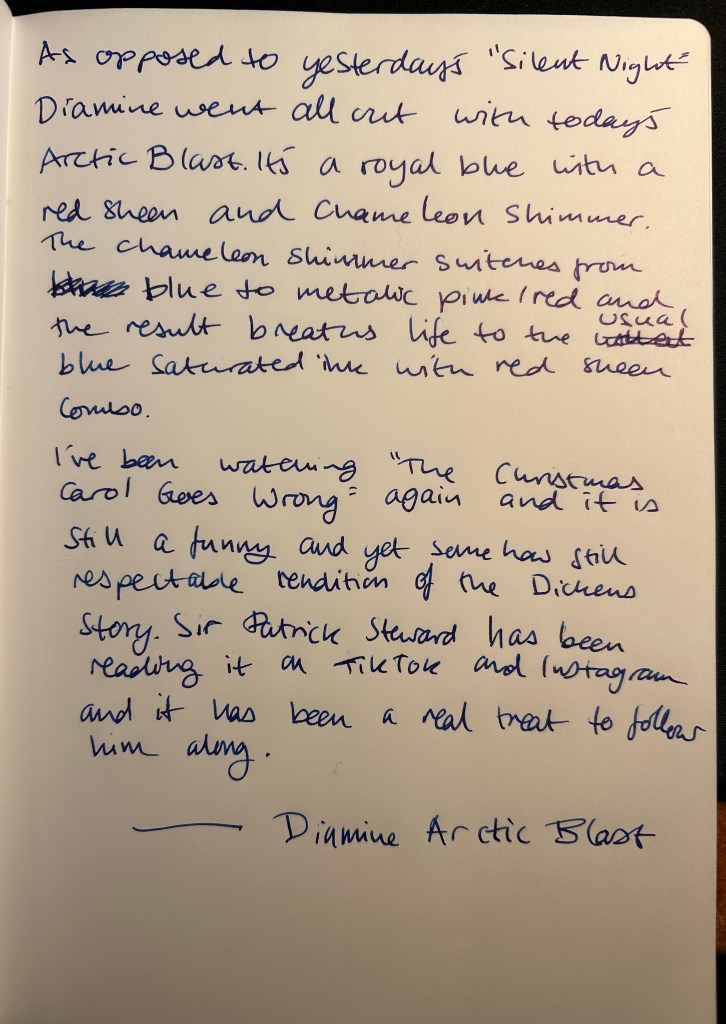 As opposed to yesterday's "Silent Night"
Diamine went all out with today's
Arctic Blast. It's a royal blue with a
red sheen and Chameleon Shimmer.
The chameleon shimmer switches from
blue to metalic pink/red and
the result breaths life to the usual
blue saturated ink with red sheen
combo.
I've been watching "The Christmas
Carol Goes Wrong" again and it is
still a funny and yet somehow still
respectable rendition of the Dickens
Story. Sir Patrick Steward has been
reading it on TikTok and Instagram
and it has been a real treat to follow
him along.
— Diamine Arctic Blast